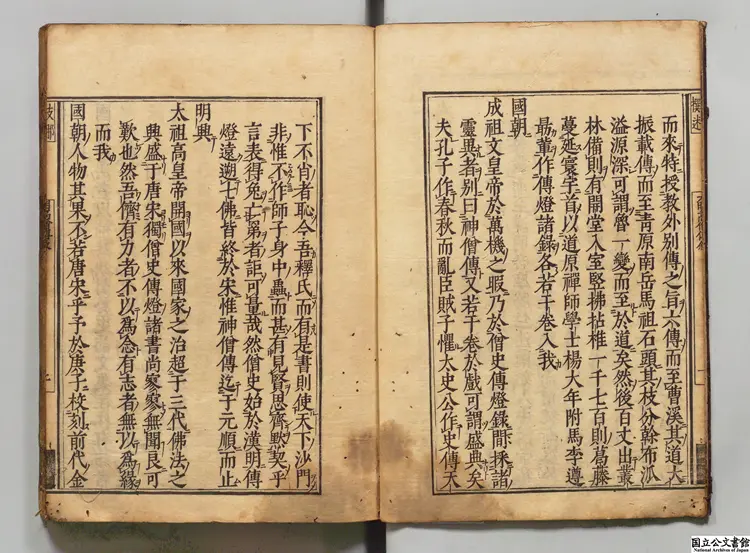 而來特授教外別傳之旨六傳而至曹溪其道大
振載傳而至青原南岳馬祖石頭其枝分幹布派
溢源深可謂魯一變而至於道矣然後百丈出叢
林備則有開堂入室竪拂拈椎一千七百則葛藤
蔓延寰宇首以道原禪師學士楊大年附馬李遵
朂輩作傳燈諸錄各若干卷入我
國朝
成祖文皇帝於萬機之暇乃於僧史傳燈錄間採諸
靈異者別曰神僧傳又若干卷於戲可謂盛典矣
夫孔子作春秋而亂臣賊子懼太史公作史傳天
下不肖者恥今吾釋氏而有是書則使天下沙門
非惟不作師子身中蟲而甚有見賢思齊默契乎
言表得兔亡罤者詎可量哉然僧史始於漢明傳
燈遠遡七佛皆終於宋惟神僧傳迄于元順而止
明興
太祖高皇帝開國以來國家之治超于三代佛法之
典盛于唐宋獨僧史傳燈諸書尚寥寥無聞良可
歎也然吾儕有力者不以為念有志者無以為緣
而我
國朝人物其果不若唐宋乎予於庚子校刻前代金
国立公文書館
National Archives of Japan